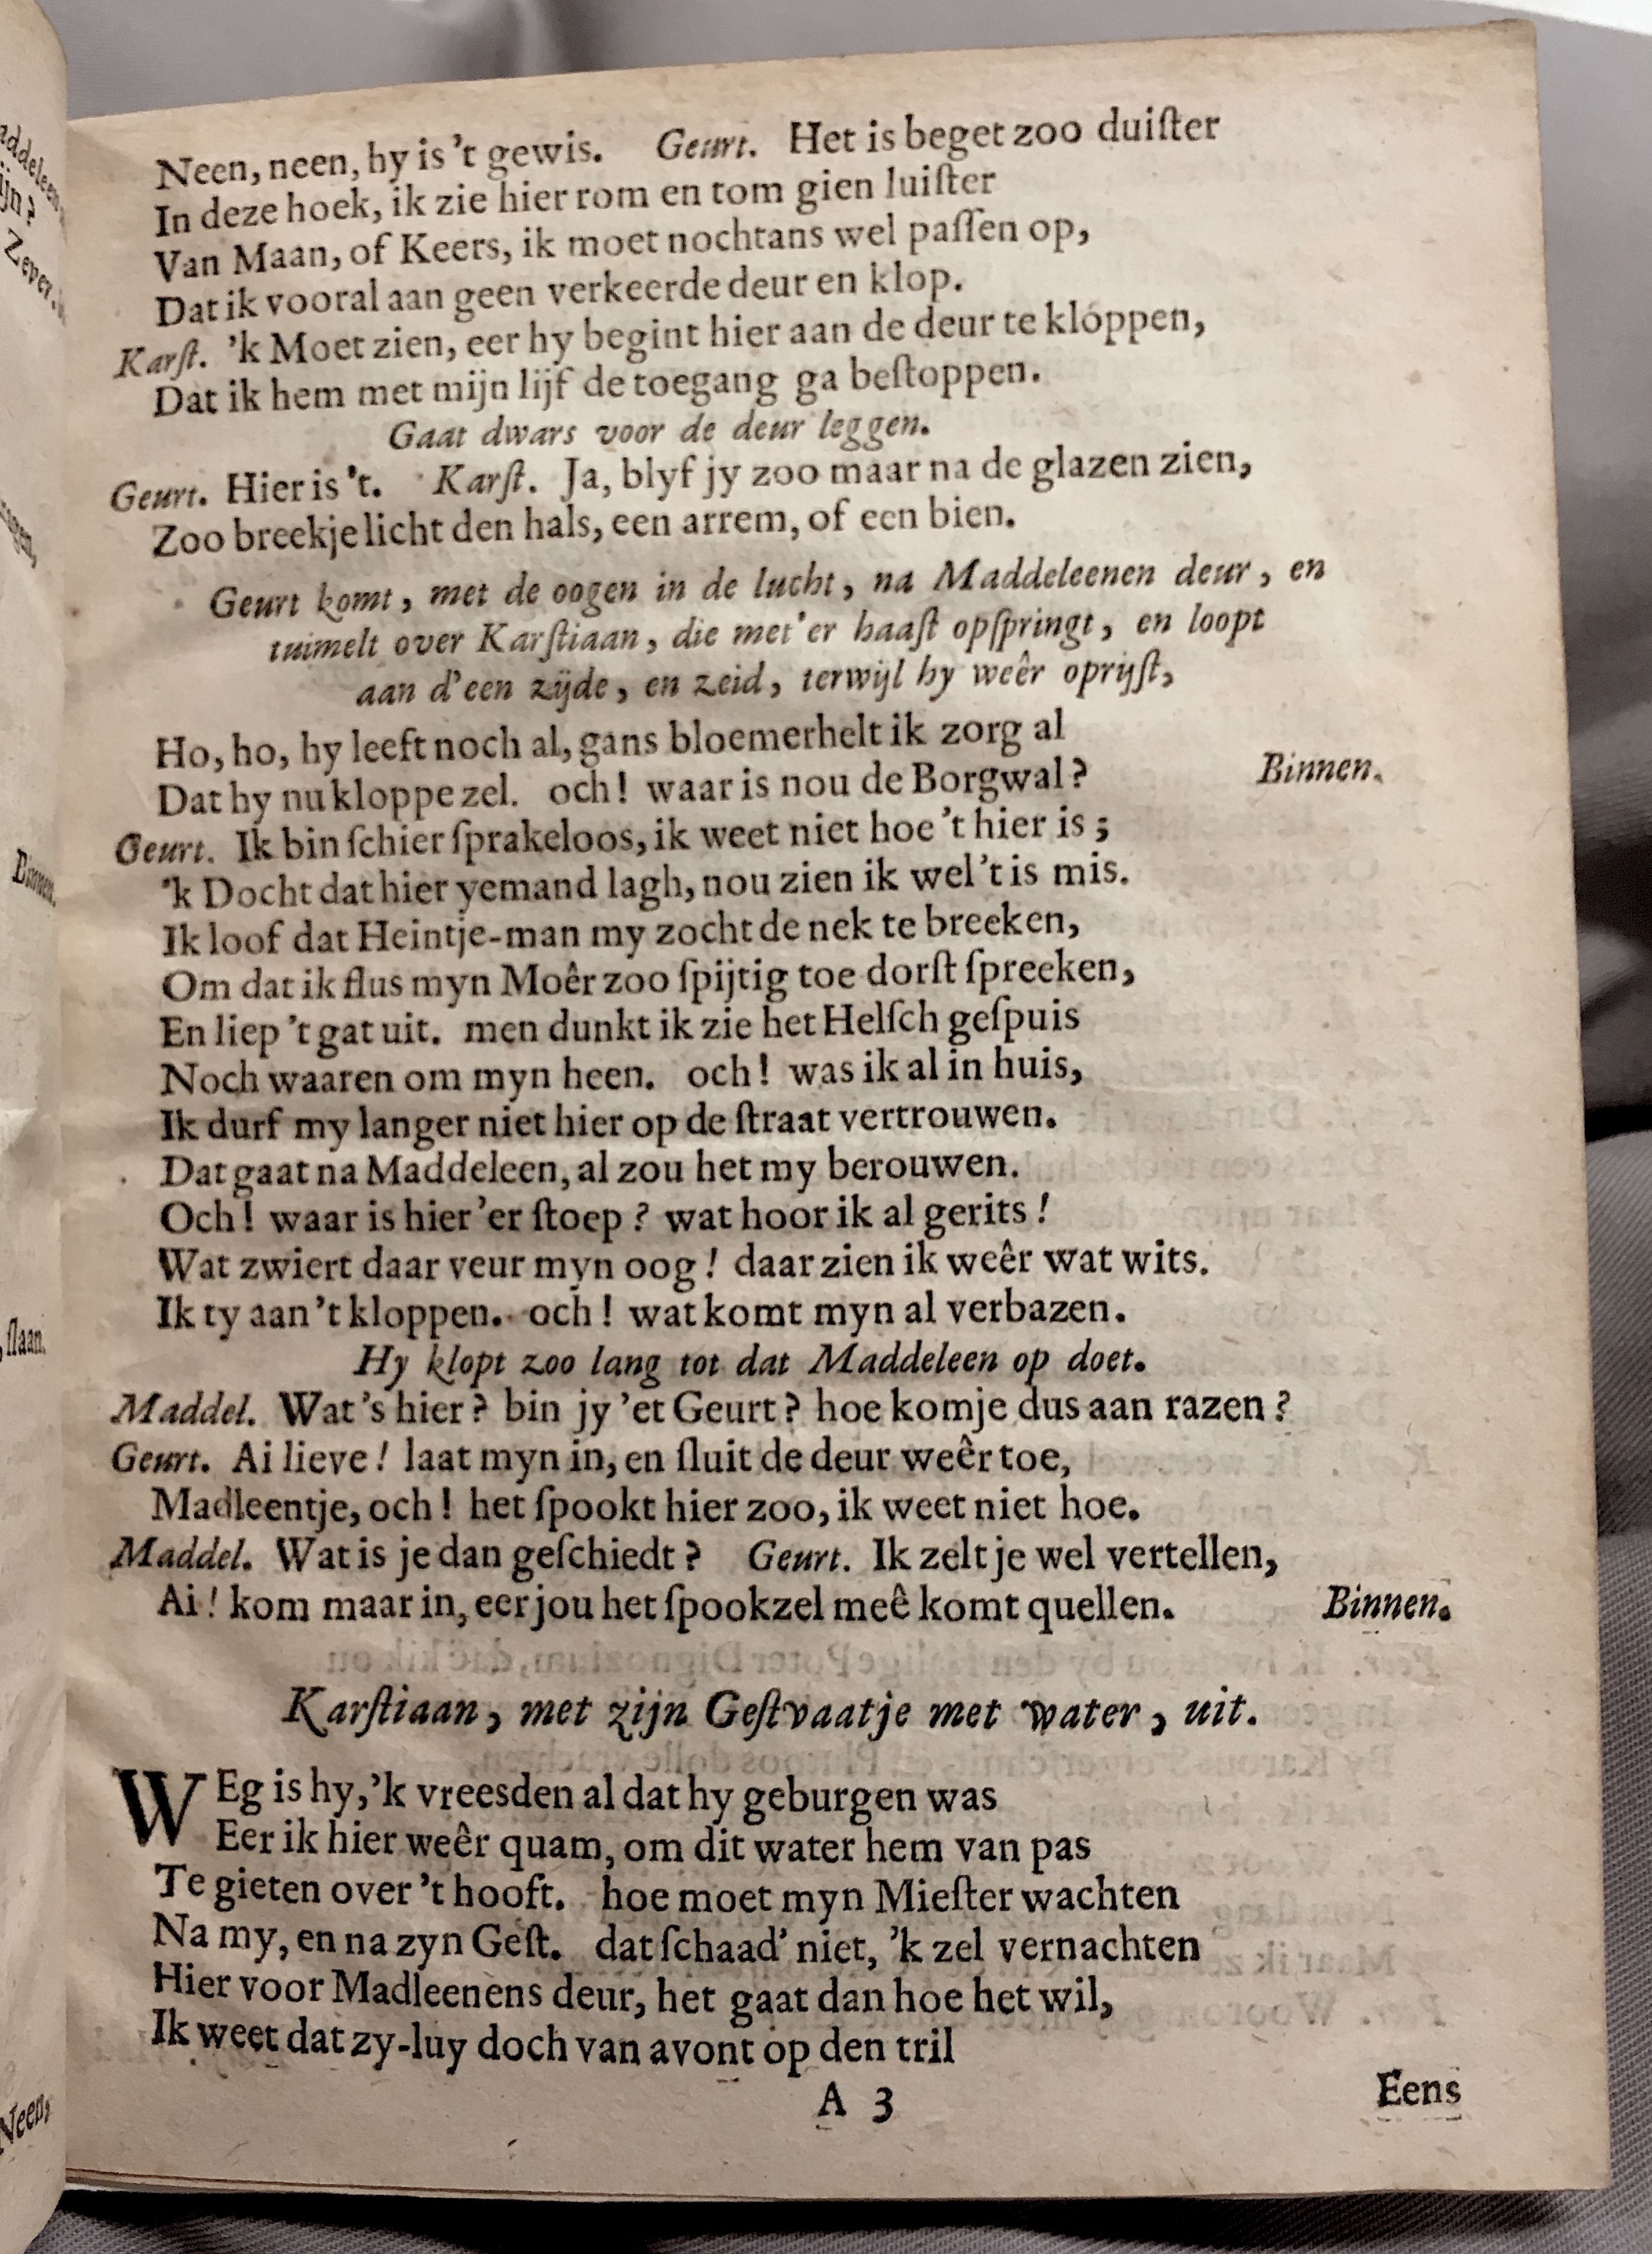 Neen, neen, hy is 't gewis. Geurt. Het is beget zoo duiſter
In deze hoek, ik zie hier rom en tom gien luiſter
Van Maan, of Keers, ik moet nochtans wel paſſen op,
Dat ik vooral aan geen verkeerde deur en klop.
Karſt. 'k Moet zien, eer hy begint hier aan de deur te klóppen,
Dat ik hem met mijn lijf de toegang ga beſtoppen.
Gaat dwars voor de deur leggen.
Geurt. Hier is 't. Karſt. Ja, blyf jy zoo maar na de glazen zien,
Zoo breekje licht den hals, een arrem, of een bien.
Geurt komt, met de oogen in de lucht, na Maddeleenen deur, en
tuimelt over Karſtiaan, die met'er haaſt opſpringt, en loopt
aan d'een zijde, en zeid, terwijl hy weêr oprijſt,
Ho, ho, hy leeft noch al, gans bloemerhelt ik zorg al
Dat hy nu kloppe zel. och! waar is nou de Borgwal? Binnen.
Geurt. Ik bin ſchier ſprakeloos, ik weet niet hoe 't hier is;
'k Docht dat hier yemand lagh, nou zien ik wel 't is mis.
Ik loof dat Heintje-man my zocht de nek te breeken,
Om dat ik flus myn Moêr zoo ſpijtig toe dorſt ſpreeken,
En liep 't gat uit. men dunkt ik zie het Helſch geſpuis
Noch waaren om myn heen. och! was ik al in huis,
Ik durf my langer niet hier op de ſtraat vertrouwen.
Dat gaat na Maddeleen, al zou het my berouwen.
Och! waar is hier 'er ſtoep? wat hoor ik al gerits!
Wat zwiert daar veur myn oog! daar zien ik weêr wat wits.
Ik ty aan 't kloppen. och! wat komt myn al verbazen.
Hy klopt zoo lang tot dat Maddeleen op doet.
Maddel. Wat 's hier? bin jy 'et Geurt? hoe komje dus aan razen?
Geurt. Ai lieve! laat myn in, en ſluit de deur weêr toe,
Madleentje, och! het ſpookt hier zoo, ik weet niet hoe.
Maddel. Wat is je dan geſchiedt? Geurt. Ik zelt je wel vertellen,
Ai! kom maar in, eer jou het ſpookzel meê komt quellen. Binnen.
Karſtiaan, met zijn Geſtvaatje met water, uit.
WEg is hy, 'k vreesden al dat hy geburgen was
Eer ik hier weêr quam, om dit water hem van pas
Te gieten over 't hooft. hoe moet myn Mieſter wachten
Na my, en na zyn Geſt. dat ſchaad' niet, 'k zel vernachten
Hier voor Madleenens deur, het gaat dan hoe het wil,
Ik weet dat zy-luy doch van avont op den tril
A 3 Eens